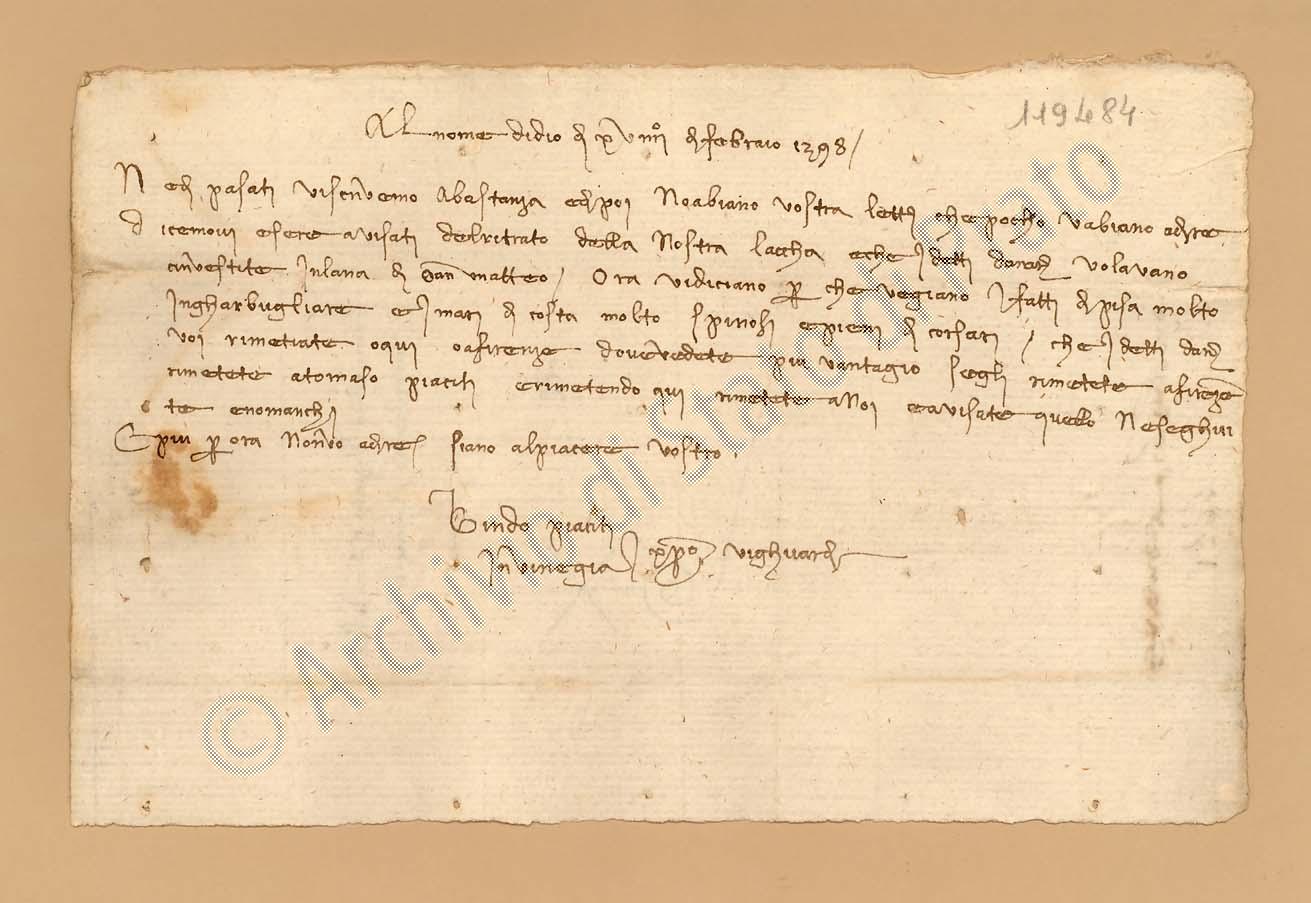 119484
Al nome di dio di xviiii° di febraio 1398
Ne dì pasati vi scrivemo abastanza e di poi no abiano vostra lettera che pocho v abiano a dire
dicemovi esere avisati del ritrato della nostra laccha e che i detti danari volavano
investite in lana di San Matteo / Ora vi diciano per che vegiano i fatti di pisa molto
ingharbugliare e i mari di costa molto e pieni di corsari / che i detti danari
voi rimetiate o qui o a firenze dove vedete più vantagio se gli rimetete a firenze
rimetete a tomaso piaciti e rimetendo qui rimetete a noi e avisate quello ne seghui
te e no manchi
E più per ora non vo a dire siano al piacere vostro
Bindo piaciti
in vinegia
© Archivio di Stato di Prato